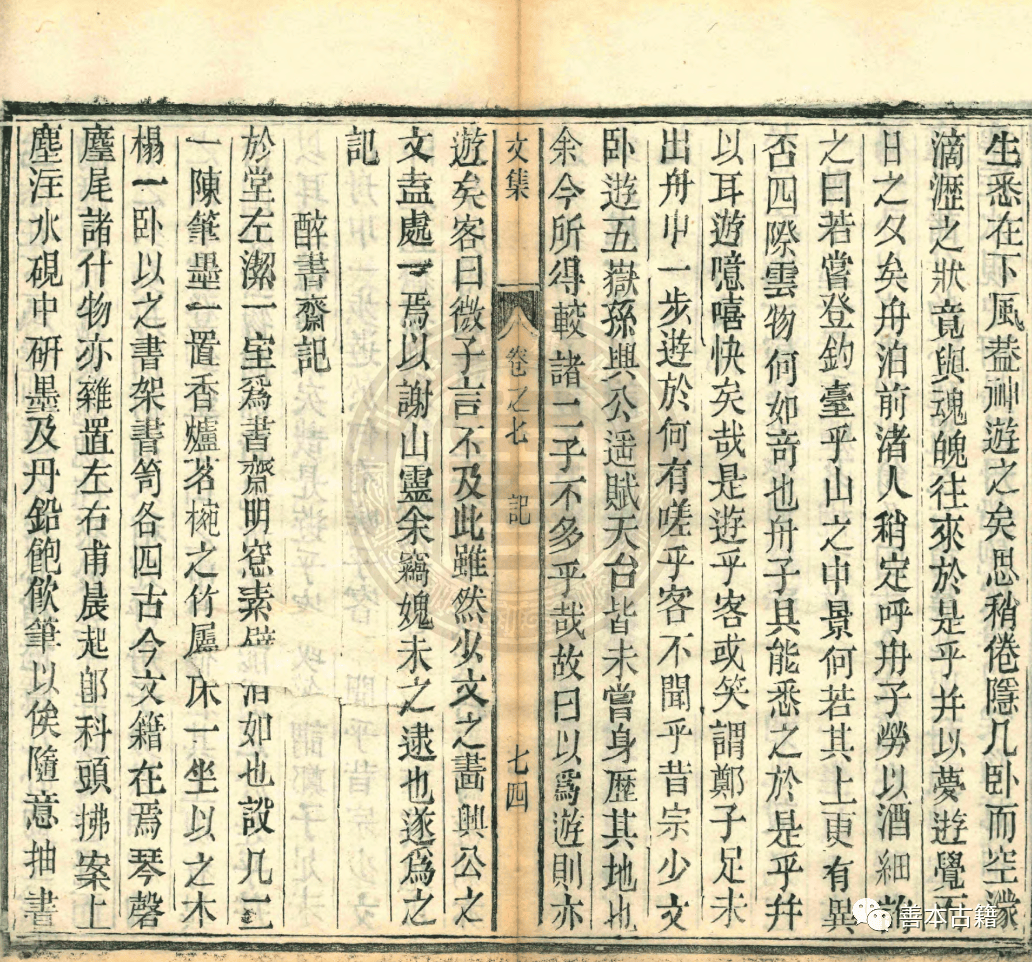 生悉在下風葢神遊之矣思稍倦隱几卧而空濛
滴瀝之狀竟與魂魄往來於是乎并以夢遊覺而
日之夕矣舟泊前渚人稍定呼舟子勞以酒細詢
之曰若嘗登釣臺乎山之中景何若其上更有異
否四際雲物何如竒也舟子具能悉之於是乎并
以耳遊噫嘻快矣哉是遊乎客或笑謂鄭子足未
出舟中一步遊於何有嗟乎客不聞乎昔宗少文
卧遊五嶽孫興公遥賦天台皆未嘗身歷其地也
余今所得較諸二子不多乎哉故曰以爲遊則亦
文集
卷之七 記
七四
遊矣客曰微子言不及此雖然少文之畵興公之
文盍處一焉以謝山靈余竊媿未之逮也遂爲之
記
醉書齋記
於堂左潔一室爲書齋明窓素壁泊如也設几二
一陳筆墨一置香爐茗椀之竹牀一坐以之木
榻一卧以之書架書笥各四古今文籍在焉琴磬
麈尾諸什物亦雜置左右甫晨起卽科頭拂案上
塵注水硯中研墨及丹鉛飽飲筆以俟隨意抽書
善本古籍